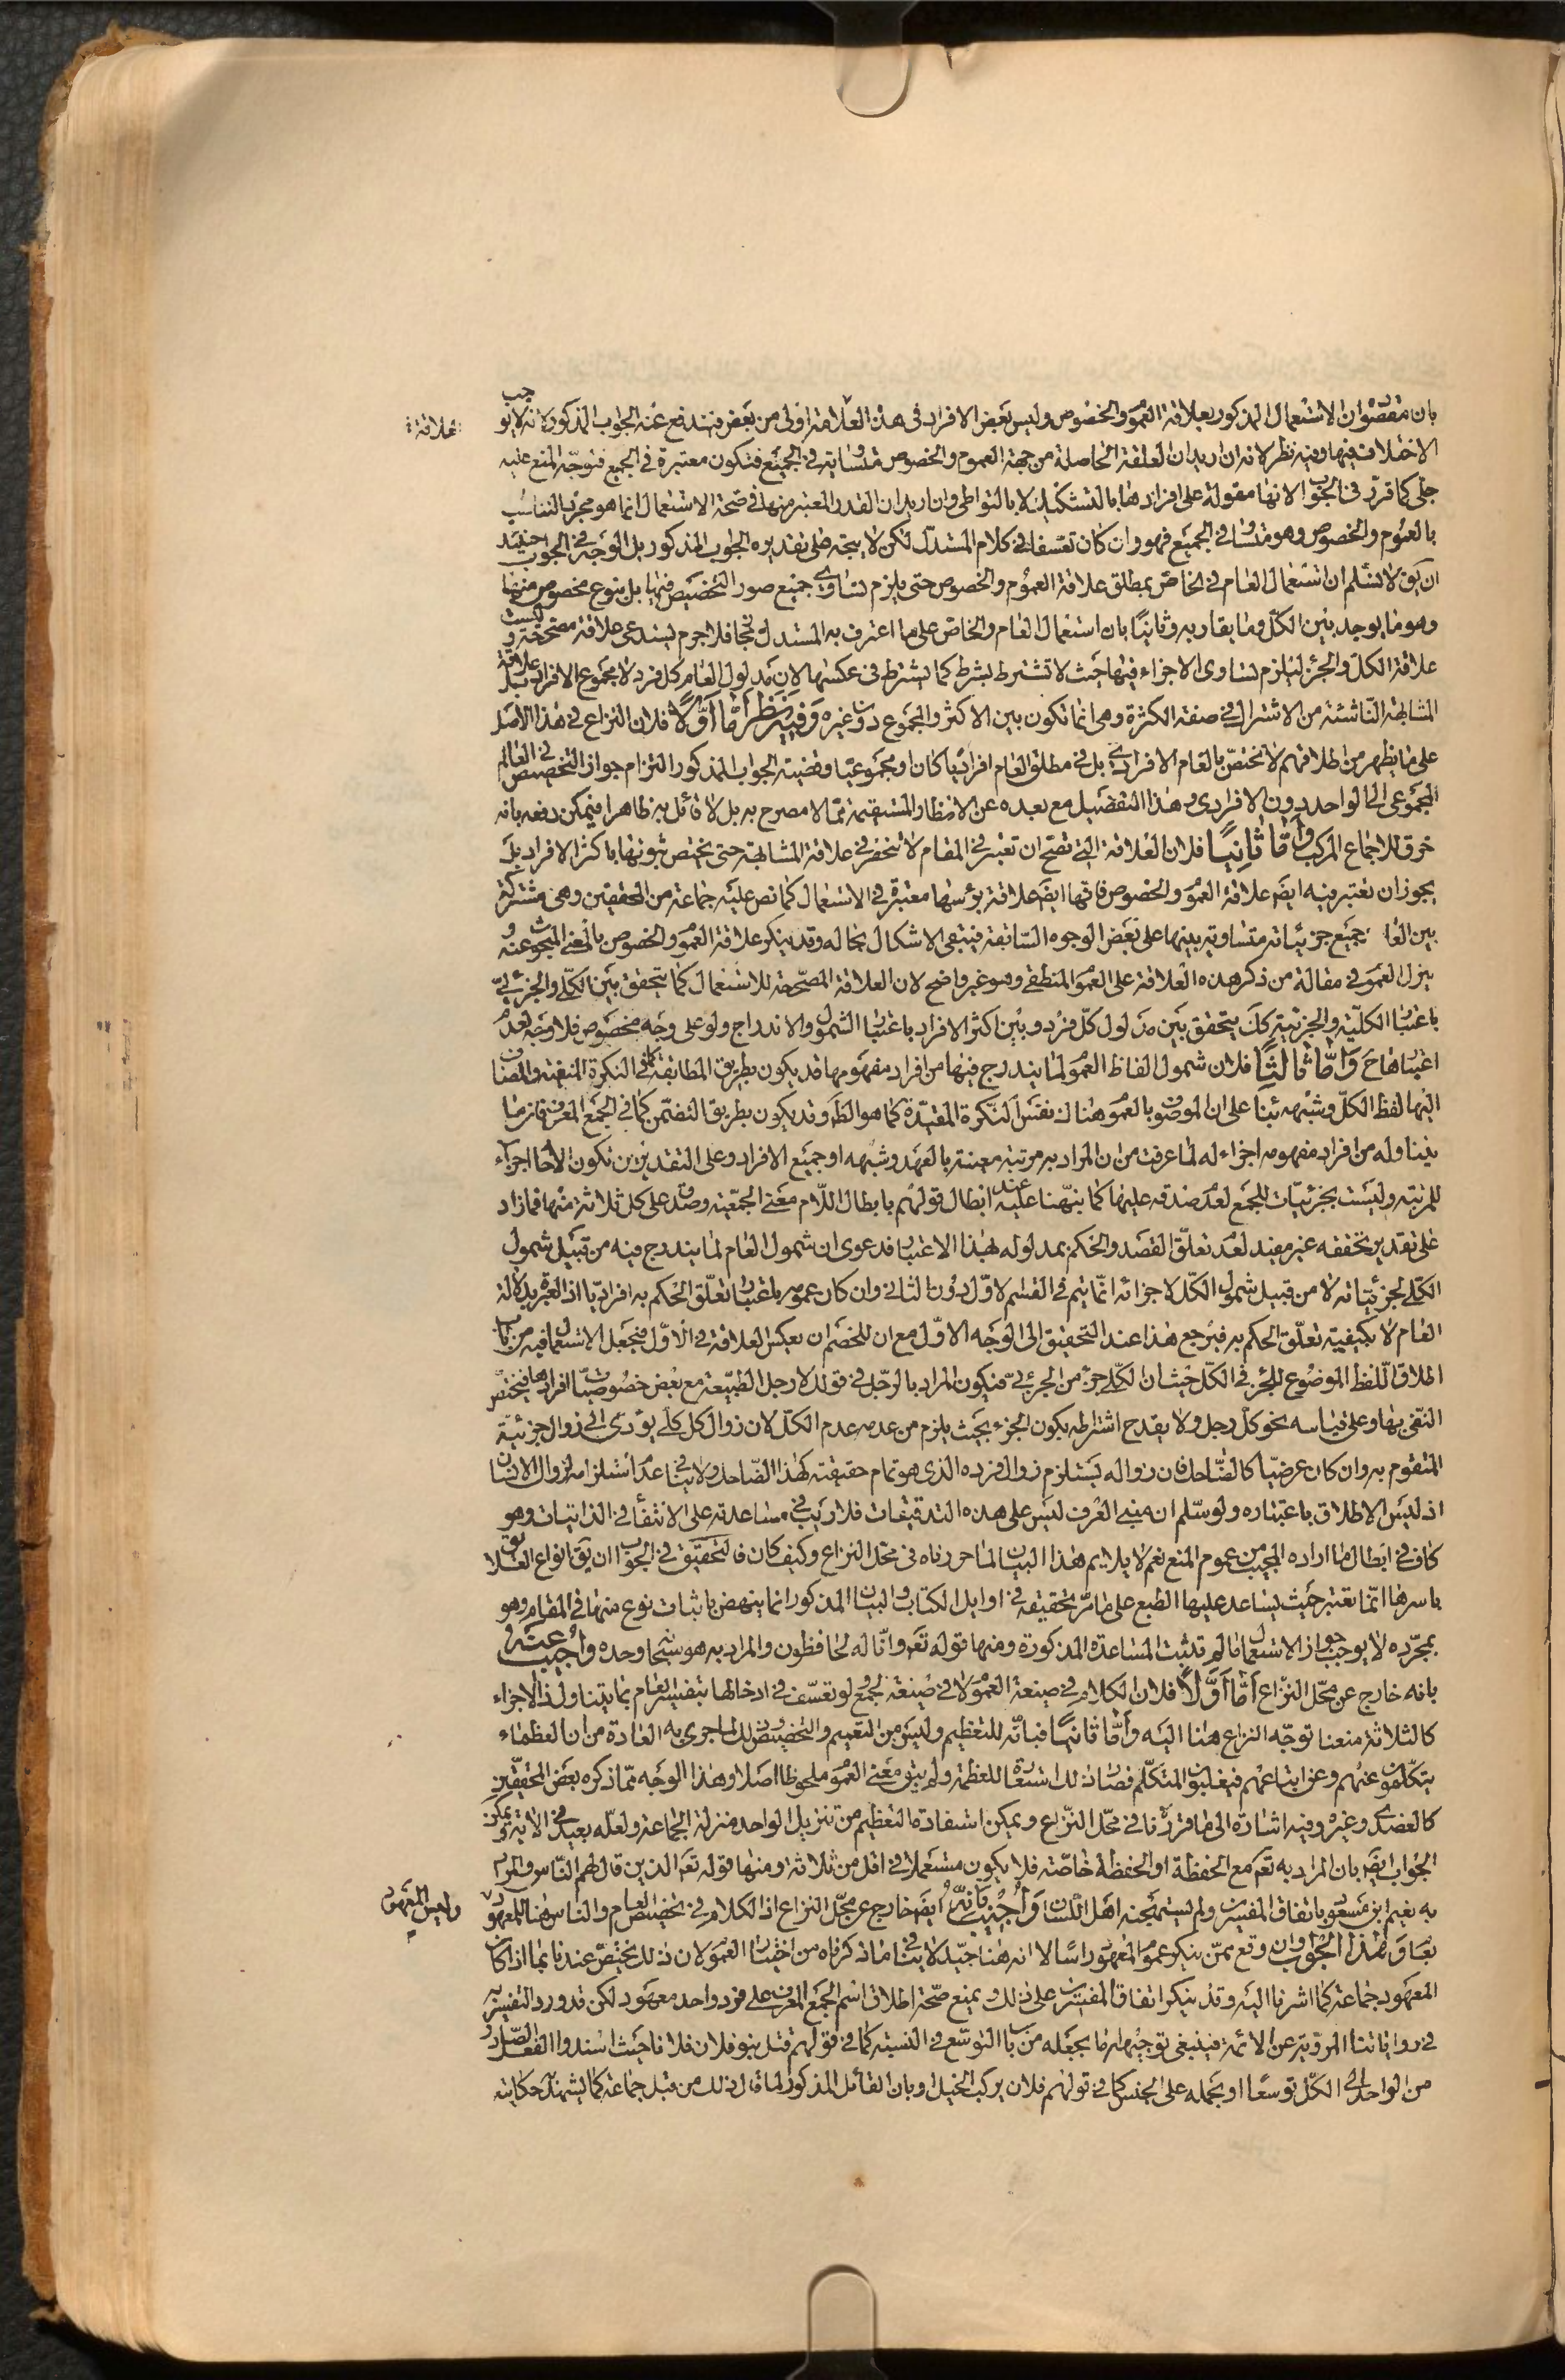 بان مقصوان الاستعمال المذكور بعلاقة العمو والخصوص وليس بعض الافراد فى هذه العلامة اولى من بعض فيندفع عنه الجواب المذكور لانه لا يوجب
علاقة
الاختلاف فيها وفيه نظر لانه ان اريد ان العلقة الحاصلة من جهة العموم والخصوص متساوية فى الجميع فتكون معتبرة فى الجميع فتوجه المنع عليه
جلى كما قرر فى الجواب لانها مقولة على افرادها بالتشكيك لا بالتواطى وان اريد ان القدر المعتبر منها فى صحة الاستعمال انما هو مجرد التناسب
بالعموم والخصوص وهو متساو فى الجميع فهو وان كان تعسفا فى كلام المستدل لكن لا يتجه على تقديره الجواب المذكور بل الوجه فى الجواب حينئذ
ان يق لا نسلم ان استعمال العام فى الخاص بمطلق علاقة العموم والخصوص حتى يلزم تساوى جميع صور التخصيص فيها بل بنوع مخصوص منها
وهو ما يوجد بين الكل وما يقاربه وثانيا بان استعمال العام والخاص على ما اعترف به المستدل مجاز فلا جرم يستدعى علاقة مصححة وليست
علاقة الكل والجزء ليلزم تساوى الاجزاء فيها حيث لا تشترط بشرط كما يشترط فى عكسها لان مدلول العام كل فرد لا مجموع الافراد بل علاقة
المشابهة الناشئة من الاشتراك فى صفة الكثرة وهى انما تكون بين الاكثر والمجموع دون غيره وفيه نظر اما اولا فلان النزاع فى هذا الاصل
على ما يظهر من اطلاقهم لا يختص بالعام الافرادى بل فى مطلق العام افراديا كان او مجموعيا وقضية الجواب المذكور التزام جواز التخصيص فى العام
المجموعى الى الواحد دون الافرادى وهذا التفصيل مع بعده عن الانظار المستقيمة مما لا مصرح به بل لا قائل به ظاهرا فيمكن دفعه بانه
خرق للاجماع المركب واما ثانيا فلان العلاقة التى تصح ان تعتبر فى المقام لا تنحصر فى علاقة المشابهة حتى يختص ثبوتها باكثر الافراد بل
يجوز ان تعتبر فيه ايضا علاقة العمو والخصوص فانها ايضا علاقة برأسها معتبرة فى الاستعمال كما نص عليه جماعة من المحققين وهى مشتركة
بين العا جميع جزئياته متساوية بينها على بعض الوجوه السابقة فيبقى الاشكال بحاله وقد ينكر علاقة العمو والخصوص بالمعنى المبحوث عنه و
ينزل العمو فى مقالة من ذكر هذه العلاقة على العمو المنطقى وهو غير واضح لان العلاقة المصححة للاستعمال كما يتحقق بين الكلى والجزئى
باعتبار الكلية والجزئية كك يتحقق بين مدلول كل فرد وبين اكثر الافراد باعتبار الشمول والاندراج ولو على وجه مخصوص فلا وجه لعدم
اعتبارها ح واما ثالثا فلان شمول الفاظ العمو لما يندرج فيها من افراد مفهومها قد يكون بطريق المطابقة كما فى النكرة المنفية والمضاف
اليها لفظ الكل وشبهه بناء على ان الموضو بالعمو هناك نفس النكرة المقيدة كما هو الظ وقد يكون بطريق التضمن كما فى الجمع المعرف فان ما
يتناوله من افراد مفهومه اجزاء له لما عرفت من ان المراد به مرتبة معينة بالعهد وشبهه او جميع الافراد وعلى التقديرين تكون الاحاد اجزاء
للمرتبة وليست بجزئيات للجمع لعدم صدقه عليها كما نبهنا عليه عند ابطال قولهم بابطال اللام معنى الجمعية وصدقه على كل ثلاثة منها فما زاد
على تقدير تحققه غير مفيد لعدم تعلق القصد والحكم بمدلوله بهذا الاعتبار فدعوى ان شمول العام لما يندرج فيه من قبيل شمول
الكلى لجزئياته لا من قبيل شمول الكل لاجزائه انما يتم فى القسم الاول دون الثانى وان كان عمومه باعتبار تعلق الحكم به افراديا اذ العبرة بدلالة
العام لا بكيفية تعلق الحكم به فيرجع هذا عند التحقيق الى الوجه الاول مع ان للخصم ان يعكس العلاقة فى الاول فيجعل الاستعمال فيه من باب
اطلاق اللفظ الموضوع للجزء فى الكل حيث ان الكلى جزء من الجزئى فيكون المراد بالرجل فى قولك لا رجل الطبيعة مع بعض خصوصيات افرادها فيختص
النفى بها وعلى قياسه نحو كل رجل ولا يقدح اشتراطه بكون الجزء بحيث يلزم من عدمه عدم الكل لان زوال كل كلى يؤدى الى زوال جزئية
المتقوم به وان كان عرضيا كالضاحك فان زواله يستلزم زوال فرده الذى هو تمام حقيقته كهذا الضاحك ولا ينافى عدم استلزامه لزوال الانسان
اذ ليس الاطلاق باعتباره ولو سلم ان مبنى العرف ليس على هذه التدقيقات فلا ريب فى مساعدته على الانتفاء فى الذاتيات وهو
كاف فى ابطال ما اراده المجيب من عموم المنع نعم لا يلايم هذا البيان لما حررناه فى محل النزاع وكيف كان فالتحقيق فى الجواب ان يق انواع العلائق
باسرها انما تعتبر حيث يساعد عليها الطبع على ما مر تحقيقه فى اوايل الكتاب والبيان المذكور انما ينهض باثبات نوع منها فى المقام وهو
بمجرده لا يوجب جواز الاستعمال ما لم تثبت المساعدة المذكورة ومنها قوله تعه وانا له لحافظون والمراد به هو سبحانه وحده واجيب عنه
بانه خارج عن محل النزاع اما اولا فلان الكلام فى صيغة العمو لا فى صيغة الجمع ولو تعسف فى ادخالها بتفسير العام بما يتناول ذا الاجزاء
كالثلاثة منعنا توجه النزاع هنا اليه واما ثانيا فبانه للتعظيم وليس من التعميم والتخصيص وذلك لما جرى به العادة من ان العظماء
يتكلمون عنهم وعن اتباعهم فيغلبون المتكلم فصار ذلك استعارة للعظمة ولم يبق معنى العمو ملحوظا اصلا وهذا الوجه مما ذكره بعض المحققين
كالعضدى وغيره وفيه اشارة الى ما قررنا فى محل النزاع ويمكن استفادة التعظيم من تنزيل الواحد منزلة الجماعة ولعله بعيد فى الاية ويمكن
الجواب ايضا بان المراد به تعه مع الحفظة او الحفظة خاصة فلا يكون مستعملا فى اقل من ثلاثة ومنها قوله تعه الذين قال لهم الناس والمراد
به نعيم ابن مسعود باتفاق المفسرين ولم يستهجنه اهل اللسان واجيب بانه ايضا خارج عن محل النزاع اذ الكلام فى تخصيص العام والناس هنا للمعهود
وليس المعهود
بعام وهذا الجواب وان وقع ممن ينكر عمو المعهود راسا الا انه هنا جيد لا ينافى ما ذكرناه من اختيار العمو لان ذلك يختص عندنا بما اذا كان
المعهود جماعة كما اشرنا اليه وقد ينكر اتفاق المفسرين على ذلك ويمنع صحة اطلاق اسم الجمع المعرف على فرد واحد معهود لكن قد ورد التفسير به
فى رواياتنا المروية عن الائمة فينبغى توجيهه اما بجعله من باب التوسع فى النسبة كما فى قولهم قتل بنو فلان فلانا حيث اسندوا الفعل الصادر
من الواحد الى الكل توسعا او بحمله على الجنس كما فى قولهم فلان يركب الخيل او بان القائل المذكور لما قال ذلك من قبل جماعة كما يشهد له حكايته